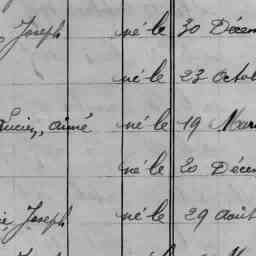 Joseph né le 30 Décem
né le 23 octob
Lucien, aimé né le 19 Mar
né le 20 Décem
Joseph né le 29 août